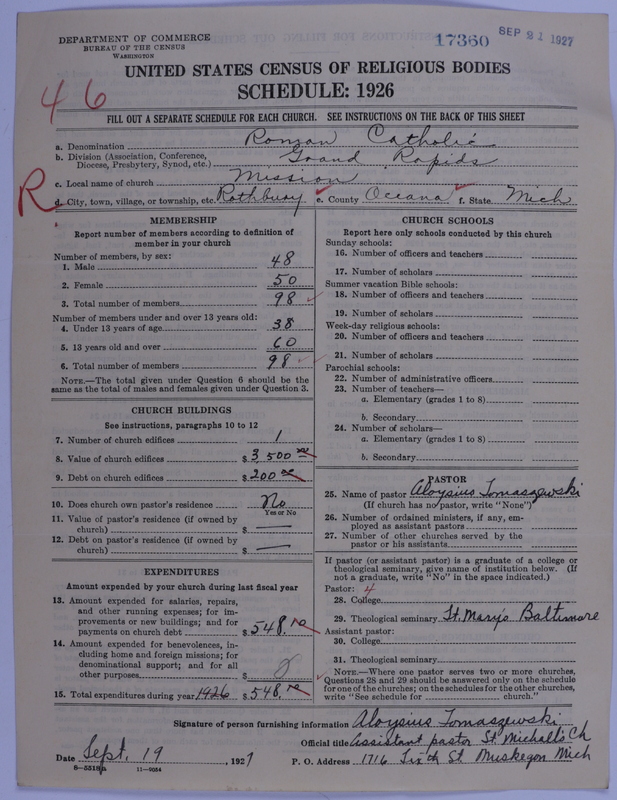 DEPARTMENT OF COMMERCE
BUREAU OF THE CENSUS
WASHINGTON
17360
SEP 21 1927
UNITED STATES CENSUS OF RELIGIOUS BODIES
SCHEDULE: 1926
46
FILL OUT A SEPARATE SCHEDULE FOR EACH CHURCH. SEE INSTRUCTIONS ON THE BACK OF THIS SHEET
a. Denomination Roman Catholic
b. Division (Association, Conference, Diocese, Presbytery, Synod, etc.) Grand Rapids
c. Local name of church Mission
R.
d. City, town, village, or township, etc. Rothbury e. County Oceana f. State Mich
MEMBERSHIP
Report number of members according to definition of
member in your church
Number of members, by sex:
1. Male 48
2. Female 50
3. Total number of members 98
Number of members under and over 13 years old:
4. Under 13 years of age 38
5. 13 years old and over 60
6. Total number of members 98
NOTE.—The total given under Question 6 should be the
same as the total of males and females given under Question 3.
CHURCH BUILDINGS
See instructions, paragraphs 10 to 12
7. Number of church edifices 1
8. Value of church edifices $ 3 500 00
9. Debt on church edifices $ 200 00
10. Does church own pastor's residence No
Yes or No
11. Value of pastor's residence (if owned by
church) $ —
12. Debt on pastor's residence (if owned by
church) $ —
EXPENDITURES
Amount expended by your church during last fiscal year
13. Amount expended for salaries, repairs,
and other running expenses; for im-
provements or new buildings; and for
payments on church debt $ 548.70
14. Amount expended for benevolences, in-
cluding home and foreign missions; for
denominational support; and for all
other purposes $
15. Total expenditures during year 1926 $ 548.70
CHURCH SCHOOLS
Report here only schools conducted by this church
Sunday schools:
16. Number of officers and teachers
17. Number of scholars
Summer vacation Bible schools:
18. Number of officers and teachers
19. Number of scholars
Week-day religious schools:
20. Number of officers and teachers
21. Number of scholars
Parochial schools:
22. Number of administrative officers
23. Number of teachers—
a. Elementary (grades 1 to 8)
b. Secondary
24. Number of scholars—
a. Elementary (grades 1 to 8)
b. Secondary
PASTOR
25. Name of pastor Aloysius Tomaszewski
(If church has no pastor, write "None")
26. Number of ordained ministers, if any, em-
ployed as assistant pastors
27. Number of other churches served by the
pastor or his assistants
If pastor (or assistant pastor) is a graduate of a college or
theological seminary, give name of institution below. (If
not a graduate, write "No" in the space indicated.)
Pastor: 4
28. College
29. Theological seminary St. Mary's Baltimore
Assistant pastor:
30. College
31. Theological seminary
NOTE.—Where one pastor serves two or more churches,
Questions 28 and 29 should be answered only on the schedule
for one of the churches; on the schedules for the other churches,
write "See schedule for church."
Signature of person furnishing information Aloysius Tomaszewski
Official title Assistant pastor St Michall's Ch
Date Sept. 19, 1927 P. O. Address 1716 Sixth St. Muskegon Mich
8—5518a 11—9054